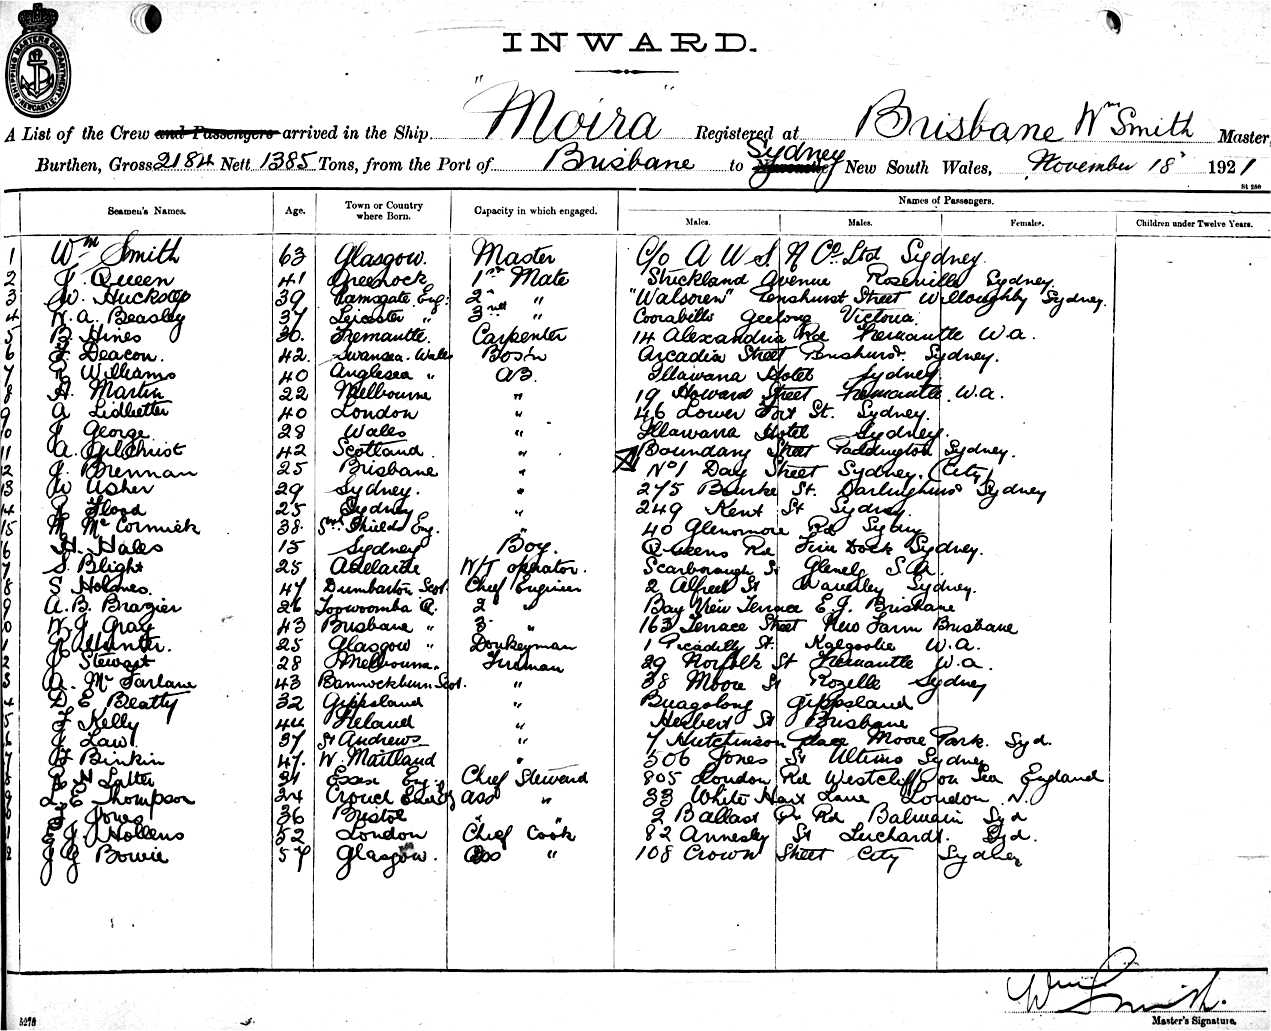 SHIPPING MASTERS DEPARTMENT NEWCASTLE
INWARD.
A List of the Crew and Passengers arrived in the Ship "Moira" Registered at Brisbane Wm Smith Master,
Burthen, Gross 2184 Nett 1385 Tons, from the Port of Brisbane to Sydney New South Wales, November 18 1921
St 280
Seamen's Names. Age. Town or Country where Born. Capacity in which engaged. Names of Passengers.
Males. Males. Females. Children under Twelve Years.
1 Wm Smith 63 Glasgow. Master C/o A W S. N Co Ltd Sydney
2 J. Queen 41 Greenock 1st Mate Strickland Avenue Roseville Sydney.
3 W. Huckstep 39 Ramsgate Eng: 2 " "Walsoren" Penshurst Street Willoughby Sydney.
4 A. Beasley 37 Leicester " 3rd " Geelong Victoria
5 Hines 30. Fremantle. Carpenter 14 Alexandria Rd Fremantle W.a.
6 Deacon. 42. Swansea. Wales Bosin Arcadia Street Sydney.
7 Williams 40 Anglesea " AB. Illawarra Hotel Sydney
8 H. Martin 22 Melbourne " 19 Howard Street Fremantle W.a.
9 A Lidbetter 40 London " 46 Lower Fort St. Sydney.
0 J George 28 Wales " Illawarra Hotel Sydney.
11 A. Gilchrist 42 Scotland " Boundary Street Paddington Sydney.
2 J. Brennan 25 Brisbane " No 1 Day Street Sydney. (City)
13 W Asher 29 Sydney. " 275 Bourke St. Darlinghurst Sydney
14 Flood 25 Sydney " 249 Kent St Sydney
15 Mc Cormick 38. Sth Shields Eng. " 40 Glenmore Rd Sydney
6 H. Hales 15 Sydney Boy. Queens Rd Five Dock Sydney.
7 S. Blight 25 Adelaide W/T operator. Scarborough St Glenelg S.A.
8 S Holmes. 47 Dumbarton Scot. Chief Engineer 2 Alfred St Waverley Sydney.
9 A. B. Brazier 26 Toowoomba Q. 2 " Bay View Terrace E. G. Brisbane
0 W J Gray 43 Brisbane " 3 " 163 Terrace Street New Farm Brisbane
1 Hunter. 25 Glasgow " Donkeyman 1 Piccadilly St. Kalgoolie W.A.
2 J Stewart 28 Melbourne. Fireman 29 Norfolk St Fremantle W.a.
3 A. Mc Farlane 43 Bannockburn Scot. " 38 Moore St Rozelle Sydney
4 D. E. Beatty 32 Gippsland " Gippsland
5 J Kelly 44 Ireland " Herbert St Brisbane
6 J. Law 37 St Andrews " 7 Hutchinson place Moore Park. Syd.
7 Binkin 47. W. Maitland " 506 Jones St Ultimo Sydney
8 Essex Eng. Chief Steward 805 London Rd Westcliff on Sea England
9 Thompson 24 Crouch End ass " 33 White Hart Lane London N.
0 Jones 36 Bristol " " 2 Ballast Pt Rd Balmain Syd
1 J. Hollens 52 London Chief Cook 82 Annesly St Lichardt. Syd.
2 J G Bowie 57 Glasgow. ass " 108 Crown Street City Sydney
Wm Smith.
5276 Master's Signature.